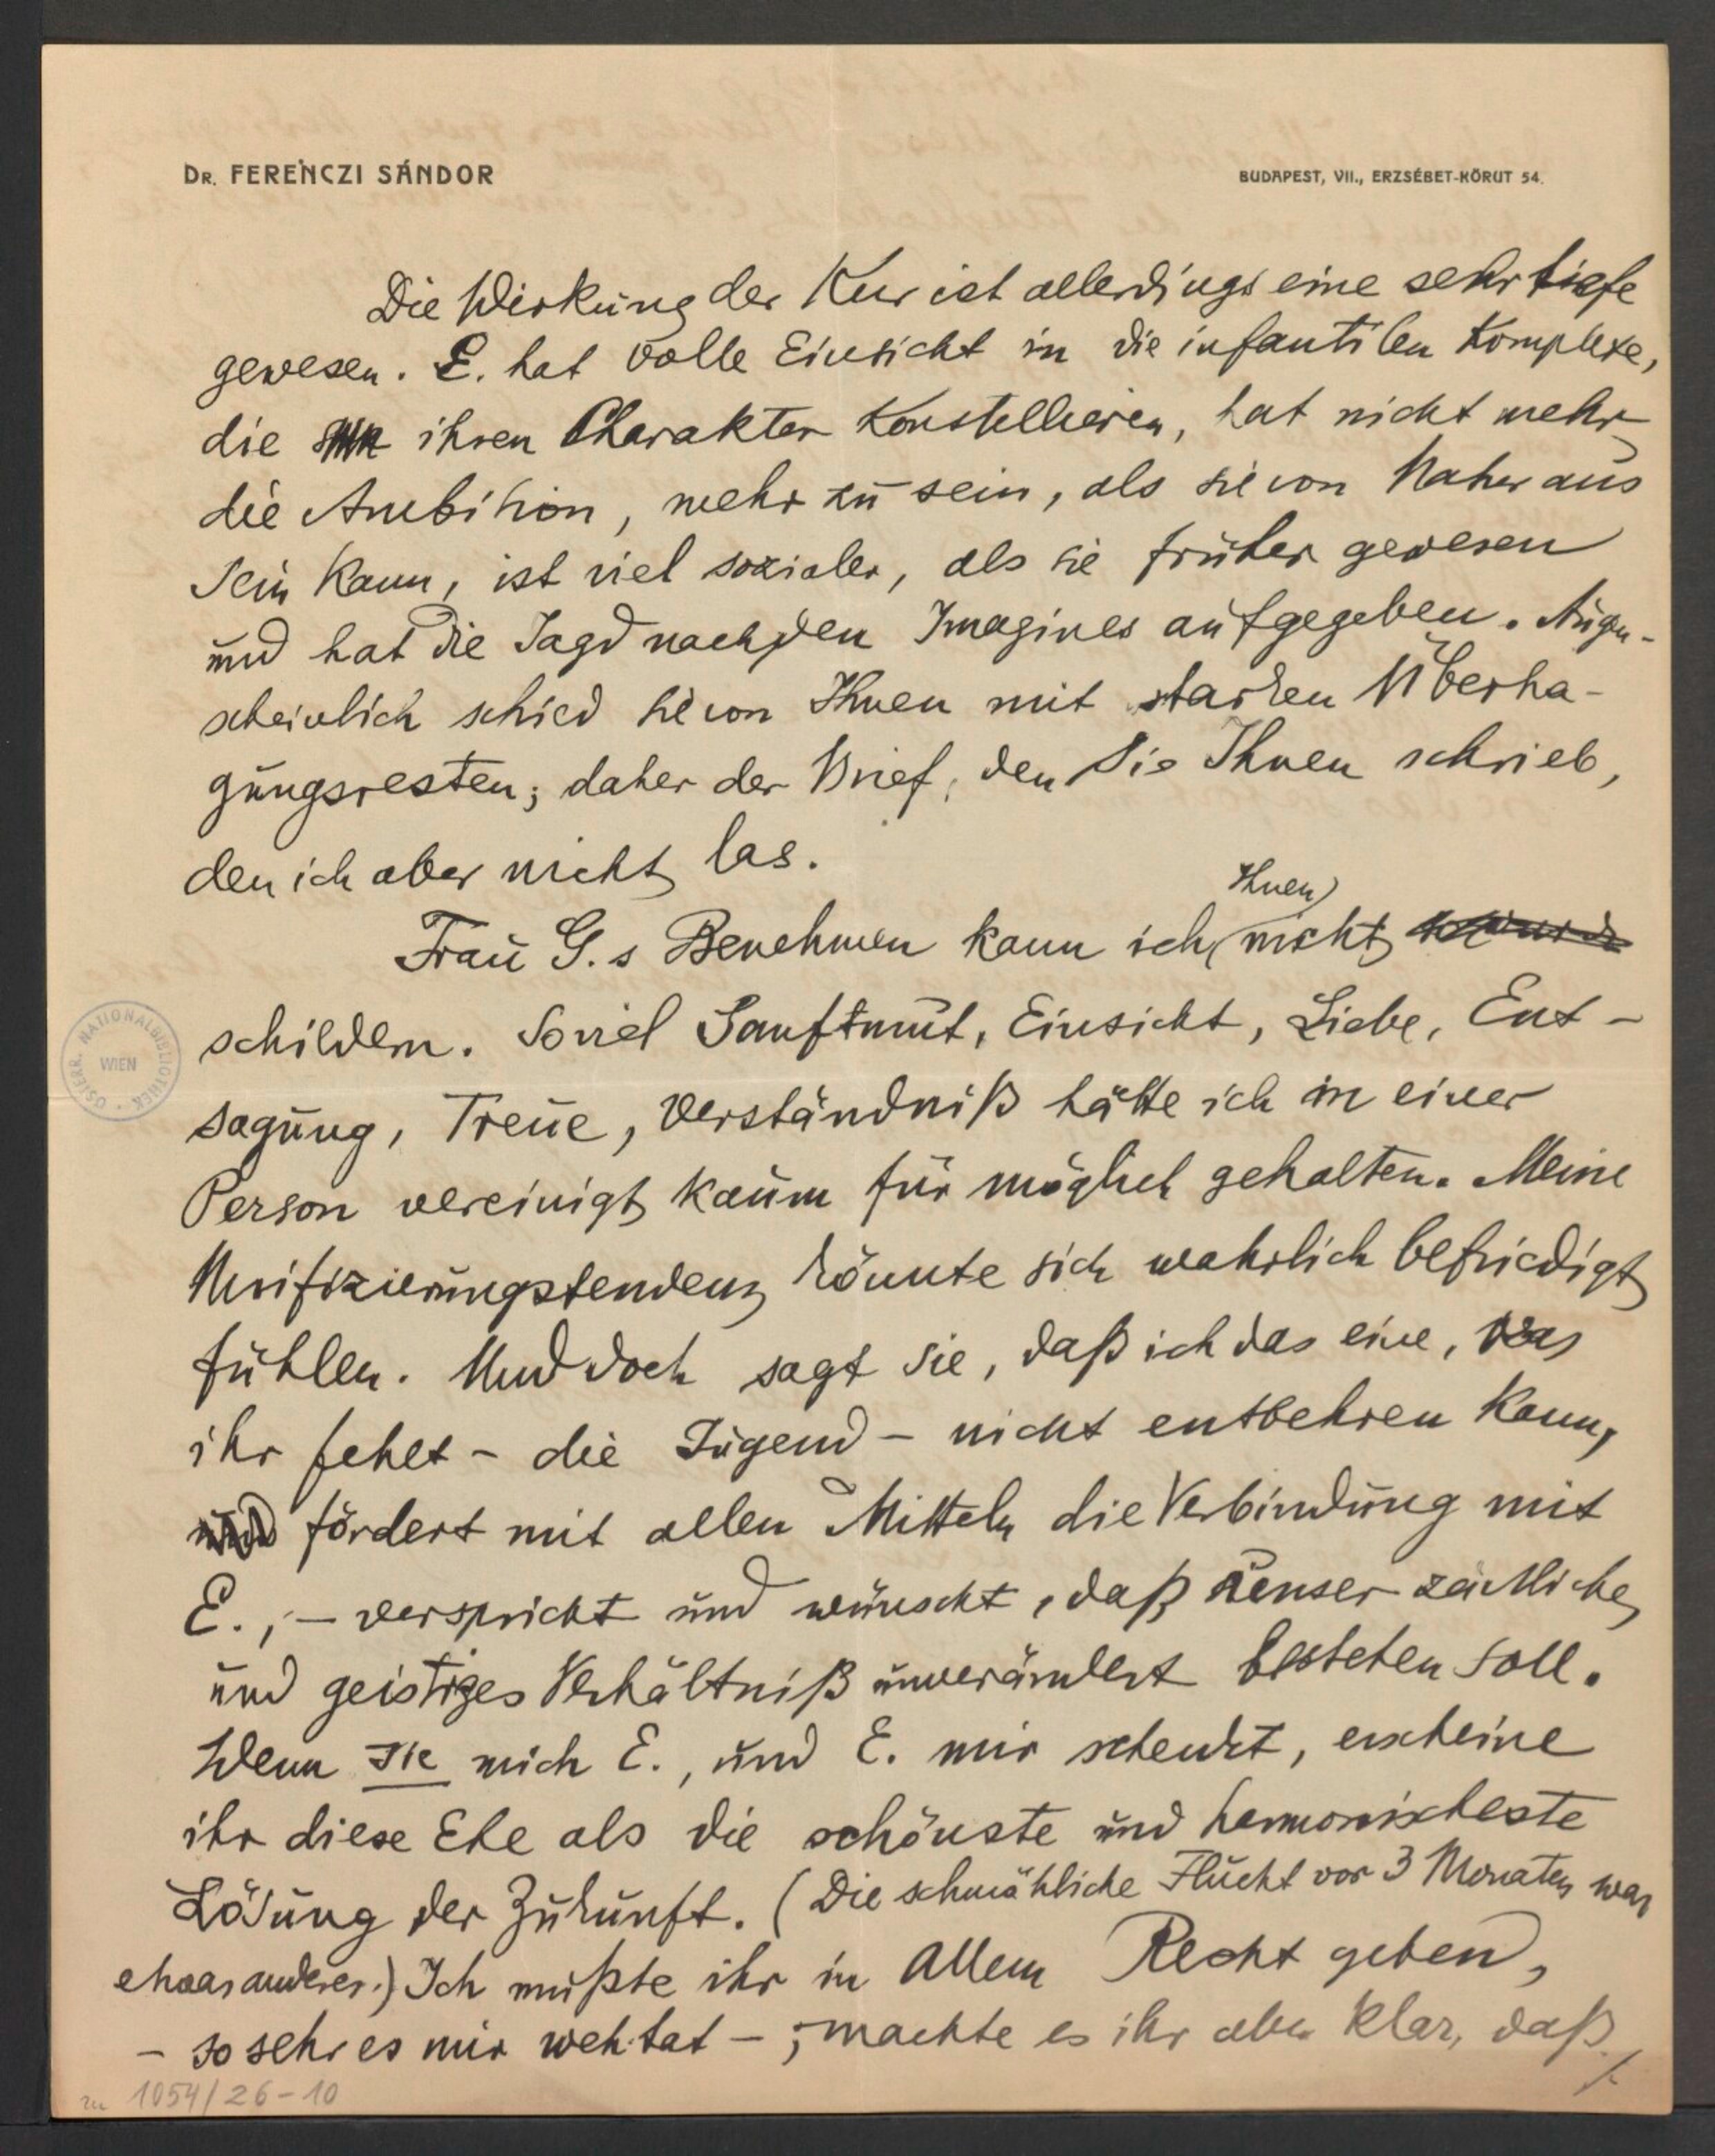 DR. FERENCZI SÁNDOR
BUDAPEST, VII., ERZSÉBET-KÖRUT 54.
Die Wirkung der Kur ist allerdings eine sehr tiefe
gewesen. E. hat volle Einsicht in die infantilen Komplexe,
die ihren Charakter konstellieren, hat nicht mehr
die Ambition, mehr zu sein, als sie von Natur aus
sein kann, ist viel sozialer, als sie früher gewesen
und hat die Jagd nach den Imagines aufgegeben. Augen-
scheinlich schied sie von Ihnen mit starken Übertra-
gungsresten; daher der Brief, den sie Ihnen schrieb,
den ich aber nicht las.
Frau G.s Benehmen kann ich Ihnen nicht
schildern. Soviel Sanftmut, Einsicht, Liebe, Ent-
sagung, Treue, Verständniß hätte ich in einer
Person vereinigt kaum für möglich gehalten. Meine
Unifizierungstendenz könnte sich wahrlich befriedigt
fühlen. Und doch sagt sie, daß ich das eine, was
ihr fehlt – die Jugend – nicht entbehren kann,
und fördert mit allen Mitteln die Verbindung mit
E.; – verspricht und wünscht, daß unser zärtliches
und geistiges Verhältniß unverändert bestehen soll.
Wenn sie mich E., und E. mir schenkt, erscheine
ihr diese Ehe als die schönste und harmonischeste
Lösung der Zukunft. (Die schmähliche Flucht vor 3 Monaten war
etwas anderes.) Ich mußte ihr in Allem Recht geben,
– so sehr es mir weh tat –; machte es ihr aber klar, daß ./.
zu 1054/26-10
ÖSTERR. NATIONALBIBLIOTHEK
WIEN